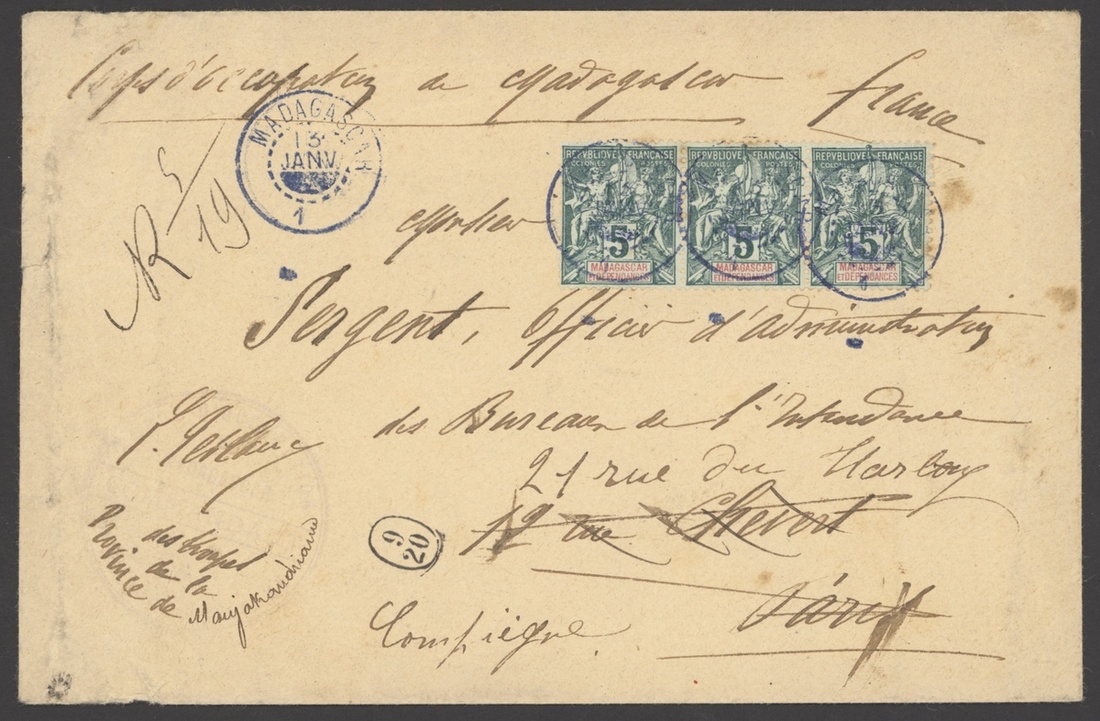 Corps d'occupation de Madagascar
France
MADAGASCAR
13
JANV.
1
R 5/19
REPVBLIQUE FRANÇAISE
COLONIES POSTES
5
MADAGASCAR
ET DÉPENDANCES
REPVBLIQUE FRANÇAISE
COLONIES POSTES
5
MADAGASCAR
ET DÉPENDANCES
REPVBLIQUE FRANÇAISE
COLONIES POSTES
5
MADAGASCAR
ET DÉPENDANCES
Monsieur
Sergent, Officier d'administration
des Bureaux de l'Intendance
21 rue du Harlay
12 rue Chevert
Paris
Compiègne
9
20
des troupes
de la
Province de Manjakandriana